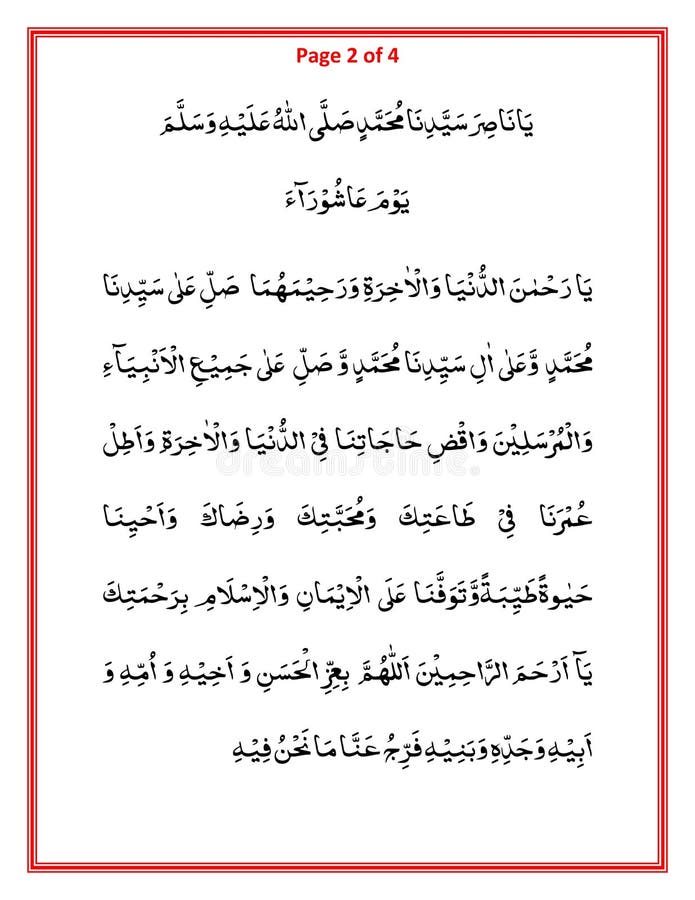 Page 2 of 4
يَا نَاصِرَ سَيَّدِنَا مُحَمَّدٍ صَلَّى اللهُ عَلَيْهِ وَسَلَّمَ
يَوْمَ عَاشُوْرَآءَ
يَا رَحْمٰنَ الدُّنْيَا وَالْاٰخِرَةِ وَرَحِيْمَهُمَا صَلِّ عَلٰى سَيِّدِنَا
مُحَمَّدٍ وَّعَلٰى اٰلِ سَيِّدِنَا مُحَمَّدٍ وَّ صَلِّ عَلٰى جَمِيْعِ الْاَنْبِيَآءِ
وَالْمُرْسَلِيْنَ وَاقْضِ حَاجَاتِنَا فِيْ الدُّنْيَا وَالْاٰخِرَةِ وَاَطِلْ
عُمْرَنَا فِيْ طَاعَتِكَ وَمُحَبَّتِكَ وَرِضَاكَ وَاَحْيِنَا
حَيٰوةً طَيِّبَةً وَّتَوَفَّنَا عَلَى الْاِيْمَانِ وَالْاِسْلَامِ بِرَحْمَتِكَ
يَآ اَرْحَمَ الرَّاحِمِيْنَ اَللّٰهُمَّ بِعِزِّ الْحَسَنِ وَ اَخِيْهِ وَ اُمِّهِ وَ
اَبِيْهِ وَجَدِّهِ وَبَنِيْهِ فَرِّجُ عَنَّا مَا نَحْنُ فِيْهِ
dreamstime